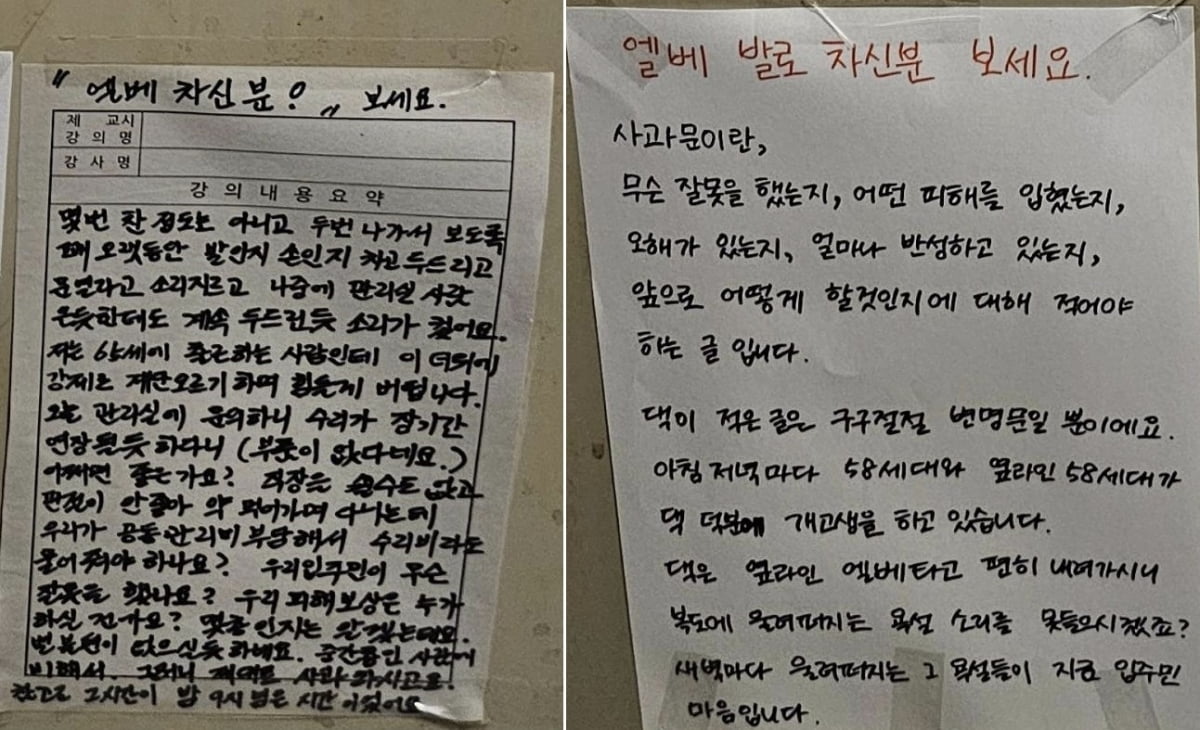 " 엘베 차신분? " 보세요.
제 교시
강 의 명
강 사 명
강 의 내 용 요 약
몇번 찬 정도는 아니고 두번 나가서 보도록
꽤 오랫동안 발인지 손인지 차고 두드리고
문열라고 소리지르고 나중에 관리실 사람
온듯한데도 계속 두드린듯 소리가 컸어요.
저는 65세에 출근하는 사람인데 이 더위에
강제로 계단오르기하며 힘들게 버팁니다.
오늘 관리실에 문의하니 수리가 장기간
연장될듯 하다니 (부품이 없다네요.)
어쩌면 좋은가요? 직장은 쉴수도 없고
관절이 안좋아 약 먹어가며 다니는데
우리가 공동관리비 부담해서 수리비라도
물어줘야 하나요? 우리입주민이 무슨
잘못을 했나요? 우리 피해보상은 누가
하실 건가요? 몇층인지는 알겠는데요.
별 불편이 없으신듯 하네요. 중간층인 사람에
비해서. 그러니 제대로 사과하시고요.
참고로 그시간이 밤 9시 넘은 시간 이었어요
엘베 발로 차신분 보세요.
사과문이란,
무슨 잘못을 했는지, 어떤 피해를 입혔는지,
오해가 있는지, 얼마나 반성하고 있는지,
앞으로 어떻게 할것인지에 대해 적어야
하는 글 입니다.
댁이 적은 글은 구구절절 변명문일 뿐이에요.
아침 저녁마다 58세대와 옆라인 58세대가
댁 덕분에 개고생을 하고 있습니다.
댁은 옆라인 엘베타고 편히 내려가시니
복도에 울려퍼지는 욕설 소리를 못들으시겠죠?
새벽마다 울려퍼지는 그 욕설들이 지금 입주민
마음입니다.